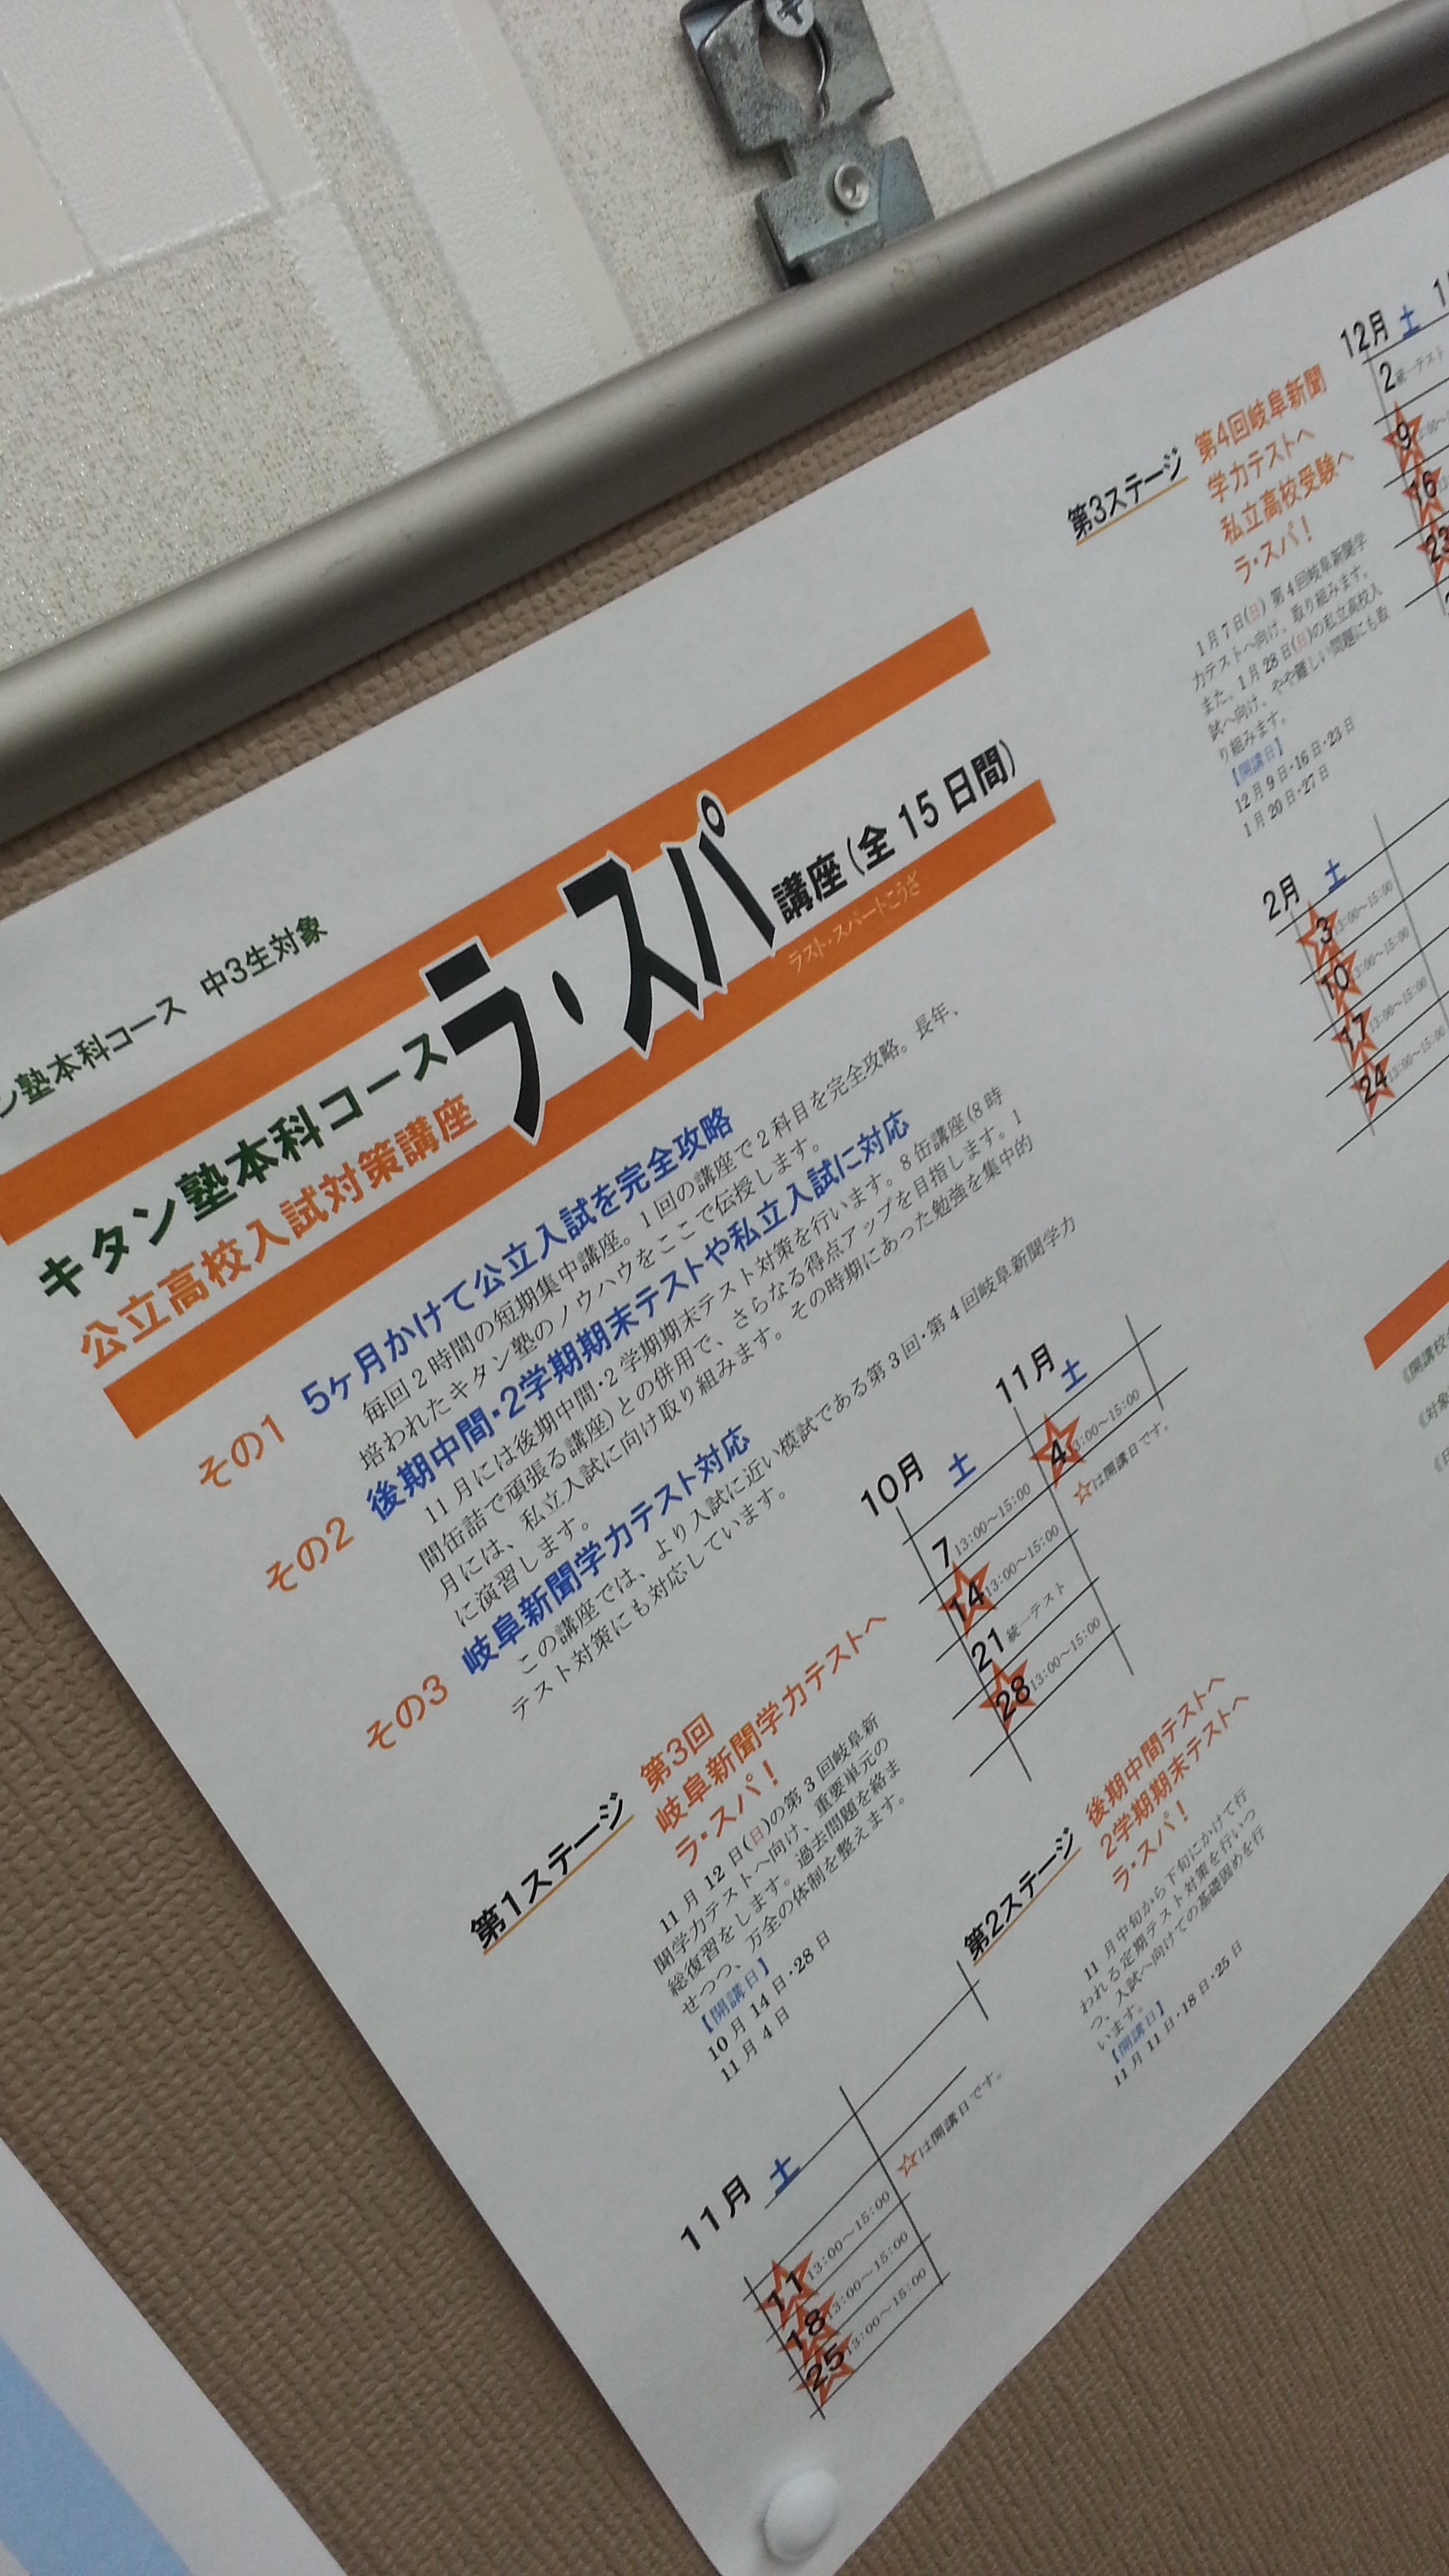 塾本科コース 中3生対象
キタン塾本科コース
公立高校入試対策講座
ラ・スパ講座(全15日間)
ラスト・スパートこうざ
その1 5ヶ月かけて公立入試を完全攻略
毎回2時間の短期集中講座。1回の講座で2科目を完全攻略。長年、
培われたキタン塾のノウハウをここで伝授します。
その2 後期中間・2学期期末テストや私立入試に対応
11月には後期中間・2学期期末テスト対策を行います。8缶講座(8時
間缶詰で頑張る講座)との併用で、さらなる得点アップを目指します。1
月には、私立入試に向け取り組みます。その時期にあった勉強を集中的
に演習します。
その3 岐阜新聞学力テスト対応
この講座では、より入試に近い模試である第3回・第4回岐阜新聞学力
テスト対策にも対応しています。
第1ステージ
第3回
岐阜新聞学力テストへ
ラ・スパ!
11月12日(日)の第3回岐阜新
聞学力テストへ向け、重要単元の
総復習をします。過去問題を絡ま
せつつ、万全の体制を整えます。
【開講日】
10月14日・28日
11月4日
10月 土
7 13:00~15:00
14 13:00~15:00
21 統一テスト
28 13:00~15:00
11月 土
4 13:00~15:00
☆は開講日です。
第2ステージ
後期中間テストへ
2学期期末テストへ
ラ・スパ!
11月中旬から下旬にかけて行
われる定期テスト対策を行いつ
つ、入試へ向けての基礎固めを行
います。
【開講日】
11月11日・18日・25日
11月 土
11 13:00~15:00
18 13:00~15:00
25 13:00~15:00
☆は開講日です。
第3ステージ
第4回岐阜新聞
学力テストへ
私立高校受験へ
ラ・スパ!
1月7日(日)第4回岐阜新聞学
力テストへ向け、取り組みます。
また、1月28日(日)の私立高校入
試へ向け、やや難しい問題にも取
り組みます。
【開講日】
12月9日・16日・23日
1月20日・27日
12月 土
2 統一テスト
9
16
23
2月 土
3 13:00~15:00
10 13:00~15:00
17 13:00~15:00
24 13:00~15:00
《開講校
《対象